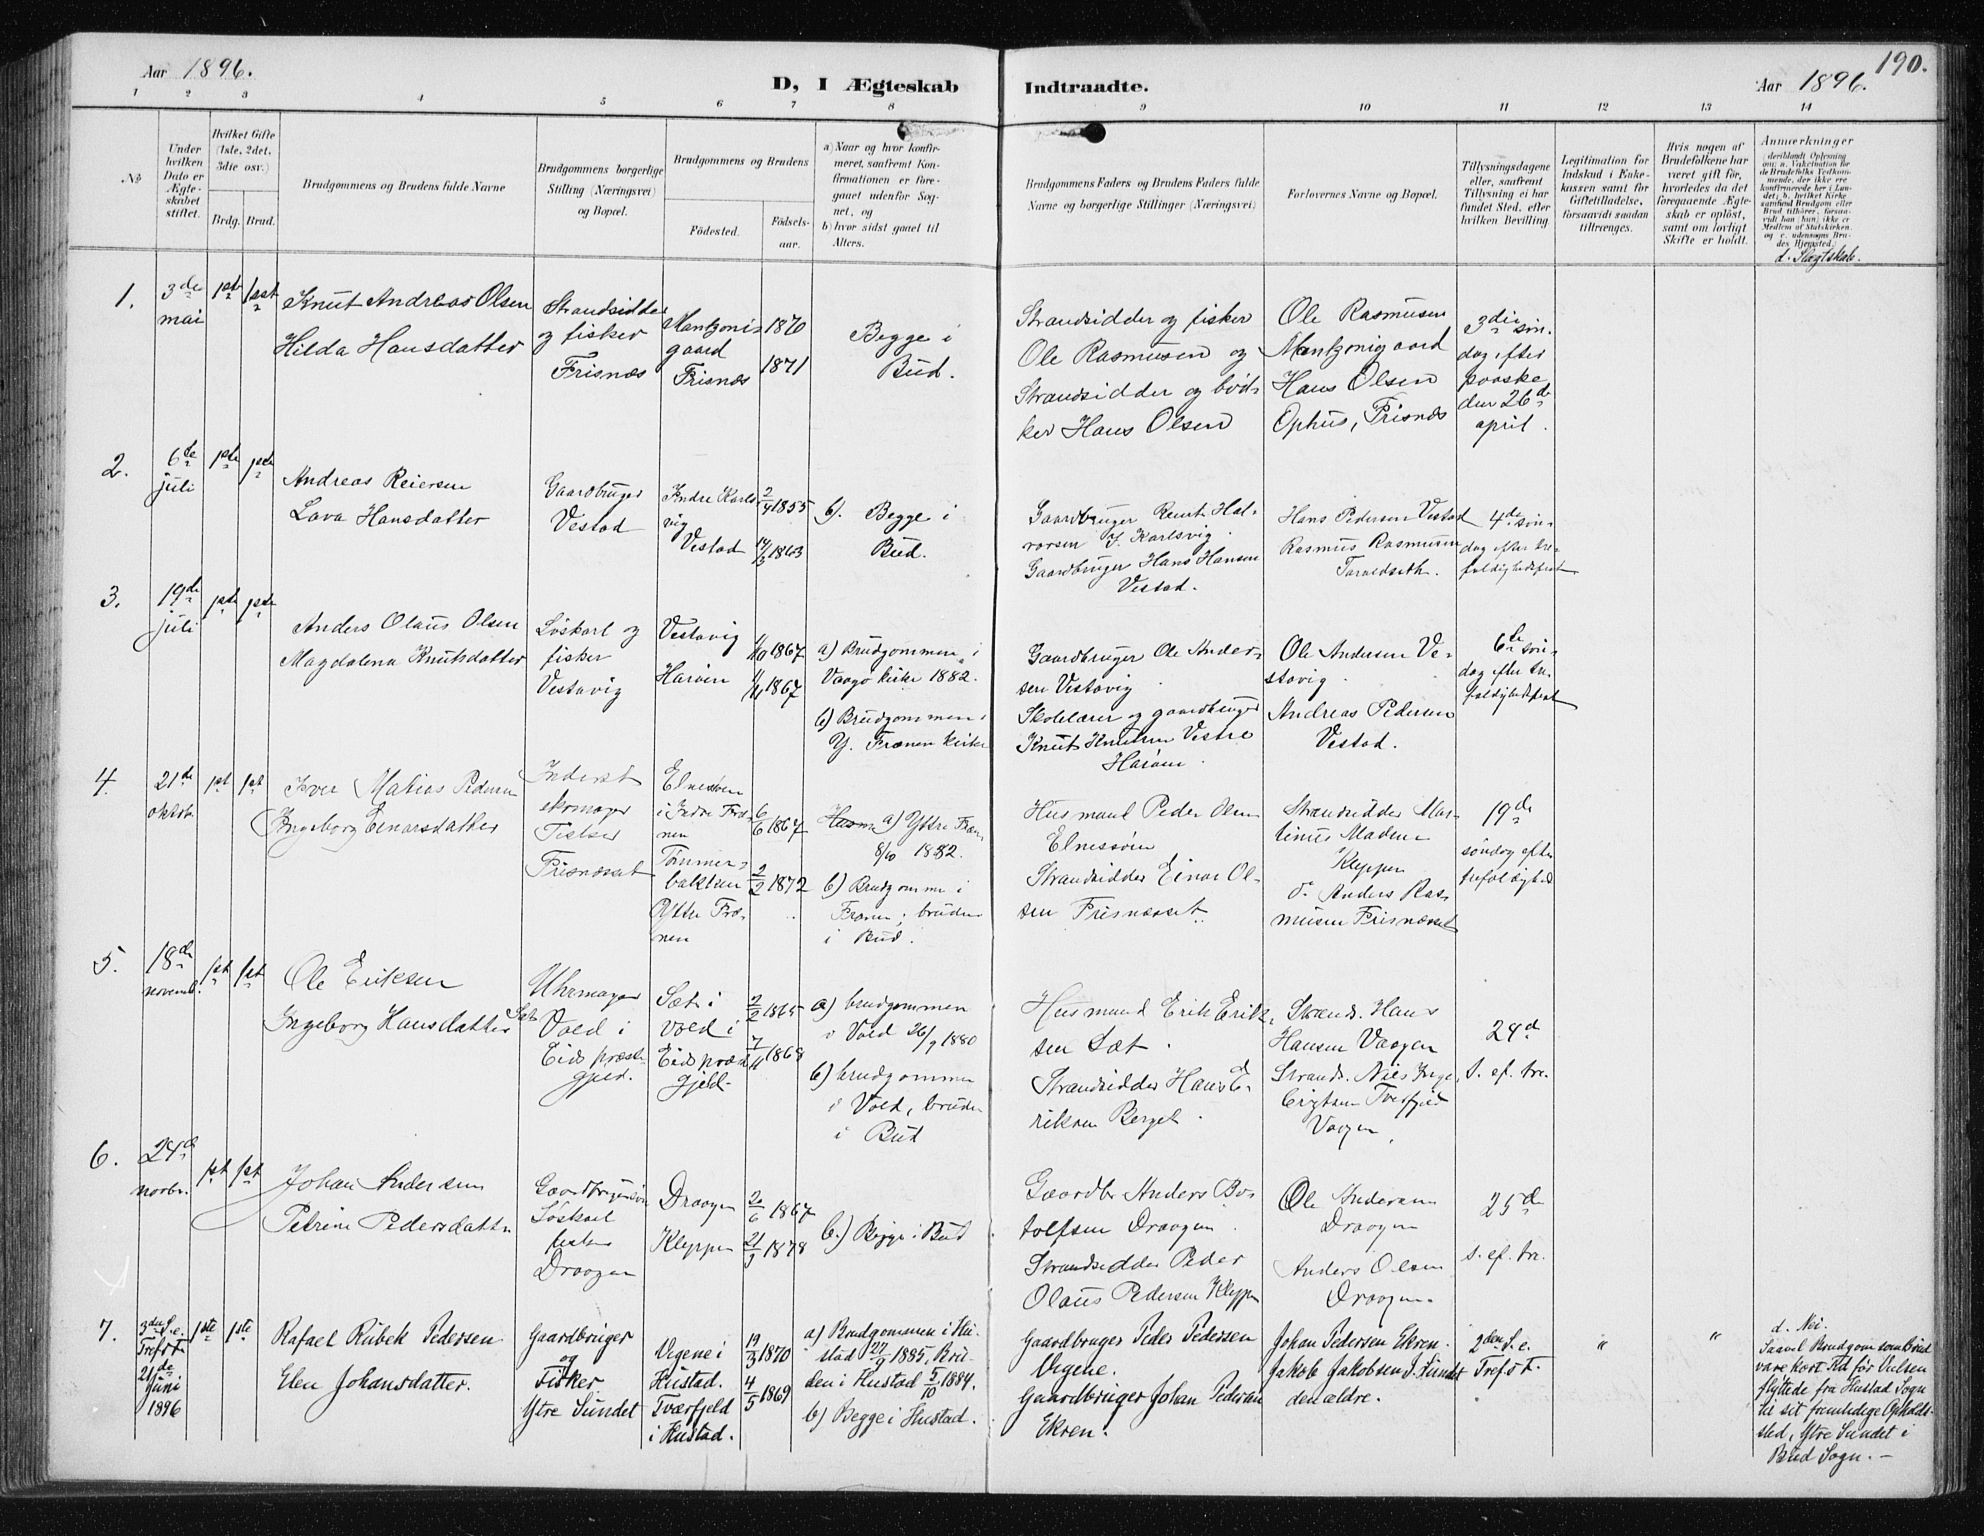 Aar 1896.
D, I Ægteskab
Indtraadte.
Aar 1896.
190.
1 2 3 4 5 6 7 8 9 10 11 12 13 14
No
Under hvilken Dato er Ægteskabet stiftet.
Hvilket Gifte (1ste, 2det, 3die osv.)
Brdg. Brud.
Brudgommens og Brudens fulde Navne
Brudgommens borgerlige Stilling (Næringsvei) og Bopæl.
Brudgommens og Brudens
Fødested.
Fødsels-aar.
a) Naar og hvor konfirmeret, saafremt Konfirmationen er foregaaet udenfor Sognet, og
b) hvor sidst gaaet til Alters.
Brudgommens Faders og Brudens Faders fulde Navne og borgerlige Stillinger (Næringsvei)
Forlovernes Navne og Bopæl.
Tillysningsdagene eller, saafremt Tillysning ei har fundet Sted, efter hvilken Bevilling
Legitimation for Indskud i Enkekassen samt for Giftetilladelse, forsaavidt saadan tiltrænges.
Hvis nogen af Brudefolkene har været gift før, hvorledes da det foregaaende Ægteskab er opløst, samt om lovligt Skifte er holdt.
Anmærkninger
d. Slægtskab.
1.
3de mai
1ste 1ste
Knut Andreas Olsen
Hilda Hansdatter
Strandsidder
og fisker
Frisnæs
gaard
Frisnæs
1870
1871
Begge i
Bud.
Strandsidder og fisker
Ole Rasmusen og
Strandsidder og bød-
ker Hans Olsen
Ole Rasmusen
Hans Olsen
Ophus, Frisnæs
3die søn-
dag efter
paaske
den 26de
april.
2.
6te juli
1ste 1ste
Andreas Reiersen
Lava Hansdatter
Gaardbruger
Vestad
Indre Karls-
vig
Vestad
2/4 1855
14/3 1863
b. Begge i
Bud.
Gaardbruger Knut Hal-
vorsen I. Karlsvig.
Gaardbruger Hans Hansen
Vestad.
Hans Pedersen Vestad
Rasmus Rasmusen
4de søn-
dag efter tre-
foldighedsfest
3.
19de juli
1ste 1ste
Anders Olaus Olsen
Magdalena Knutsdatter
Løskarl og
fisker
Vestavig
Vestavig
Harøen
1867
1867
a) Brudgommen i
Vaagø kirke 1882.
b) Brudgommen i
Y. Frænen kirke
Gaardbruger Ole Ander-
sen Vestavig
Skolelærer og gaardbruger
Knut Knutsen Vestre
Harøen
Ole Andersen Ve-
stavig.
Andreas Pedersen
Vestad.
6te søn-
dag efter tre-
foldighedsfest
4.
21de oktob.
1st 1st
Iver Matias Pedersen
Ingeborg Einarsdatter
Inderst
skomager
Frisnæsset
Elnesøen
i Indre Fræ-
nen
Tømmer-
bakken
Ytre Fræ-
nen
6/6 1867
2/2 1872
a) Yttre Fræn.
8/10 1882.
b) Brudgommen i
Frænen; bruden
i Bud.
Husmand Peder Olsen
Elnesøen
Strandsidder Einar Ol-
sen Frisnæsset
Strandsidder Mar-
tinus Madsen
Kleppen
Anders Ras-
musen Frisnæsset
19de
søndag efter
trefoldighed
5.
18de novemb.
1st 1st
Ole Eriksen
Ingeborg Hansdatter
Uhrmager
Sæt
Vold i
Eids præste-
gjeld.
Sæt i
Vold i
Eids præste-
gjeld-
2/2 1865
7/11 1868
a) brudgommen
i Vold 26/9 1880
b) brudgommen
i Vold, bruden
i Bud
Husmand Erik Erik-
sen Sæt.
Strandsidder Hans E-
riksen Berget.
Strands. Hans
Hansen Vaagen
Strands. Nils Inge-
brigtsen
Vaagen.
24de
S. ef. tre.
6.
24de novbr.
1st 1st
Johan Andersen
Petrine Pedersdatter
Gaardbrugersøn
Løskarl
fisker
Draagen
Draagen
Kleppen
20/6 1867
21/3 1878
b.) Begge i Bud
Gaardbr. Anders Bo-
tolfsen Draagen.
Strandsidder Peder
Olaus Pedersen Kleppen
Ole Andersen
Draagen
Anders Olsen
Draagen.
25de
s. ef. tre.
7.
3die S. e.
Tref. F.
21de
Juni
1896
1ste 1ste
Rafael Rubek Pedersen
Elen Johansdatter.
Gaardbruger
og
Fisker
Ytre Sundet
Vegene i
Hustad.
Tværfjeld
i Hustad.
19/3 1870
4/5 1869
a) Brudgommen i Hu-
stad 27/9 1885, Bru-
den i Hustad 5/10 1884.
b) Begge i Hustad.
Gaardbruger Peder Pedersen
Vegene.
Gaardbruger Johan Pedersen
Ekren.
Johan Pedersen Ekren.
Jakob Jakobsen I. Sundet
den ældre.
2den S. e.
Tref. F.
"
"
d. Nei.
Saavel Brudgom som Brud
vare kort Tid før Vielsen
flyttede fra Hustad Sogn
til sit fremtidige Opholds-
sted, Ytre Sundet i
Bud Sogn. -